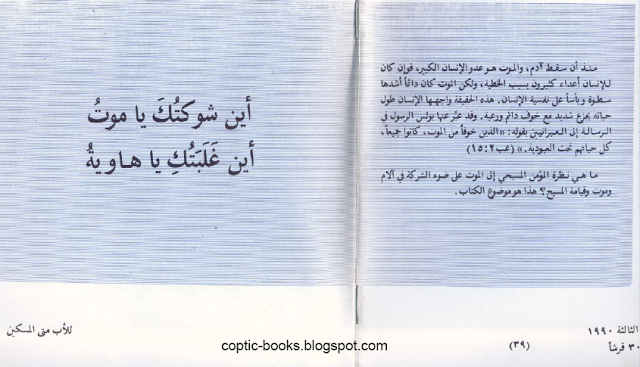 منذ أن سقط آدم، والموت هو عدو الإنسان الكبير، فإن كان
للإنسان أعداء كثيرون بسبب الخطية، ولكن الموت كان دائماً أشدها
سطوة وبأساً على نفسية الإنسان. هذه الحقيقة واجهها الإنسان طول
حياته بجزع شديد مع خوف دائم ورعبة. وقد عبَّر عنها بولس الرسول في
الرسالة إلى العبرانيين بقوله: «الذين خوفاً من الموت، كانوا جميعاً،
كل حياتهم تحت العبودية.» (عب٢: ١٥)
ما هي نظرة المؤمن المسيحي إلى الموت على ضوء الشركة في آلام
وموت وقيامة المسيح؟ هذا هو موضوع الكتاب.
الثالثة ١٩٩٠
٣٠ قرشاً
(٣٩)
أين شوكتُكَ يا موتُ
أين غَلَبَتُكِ يا هاويةُ
للأب متى المسكين
coptic-books.blogspot.com